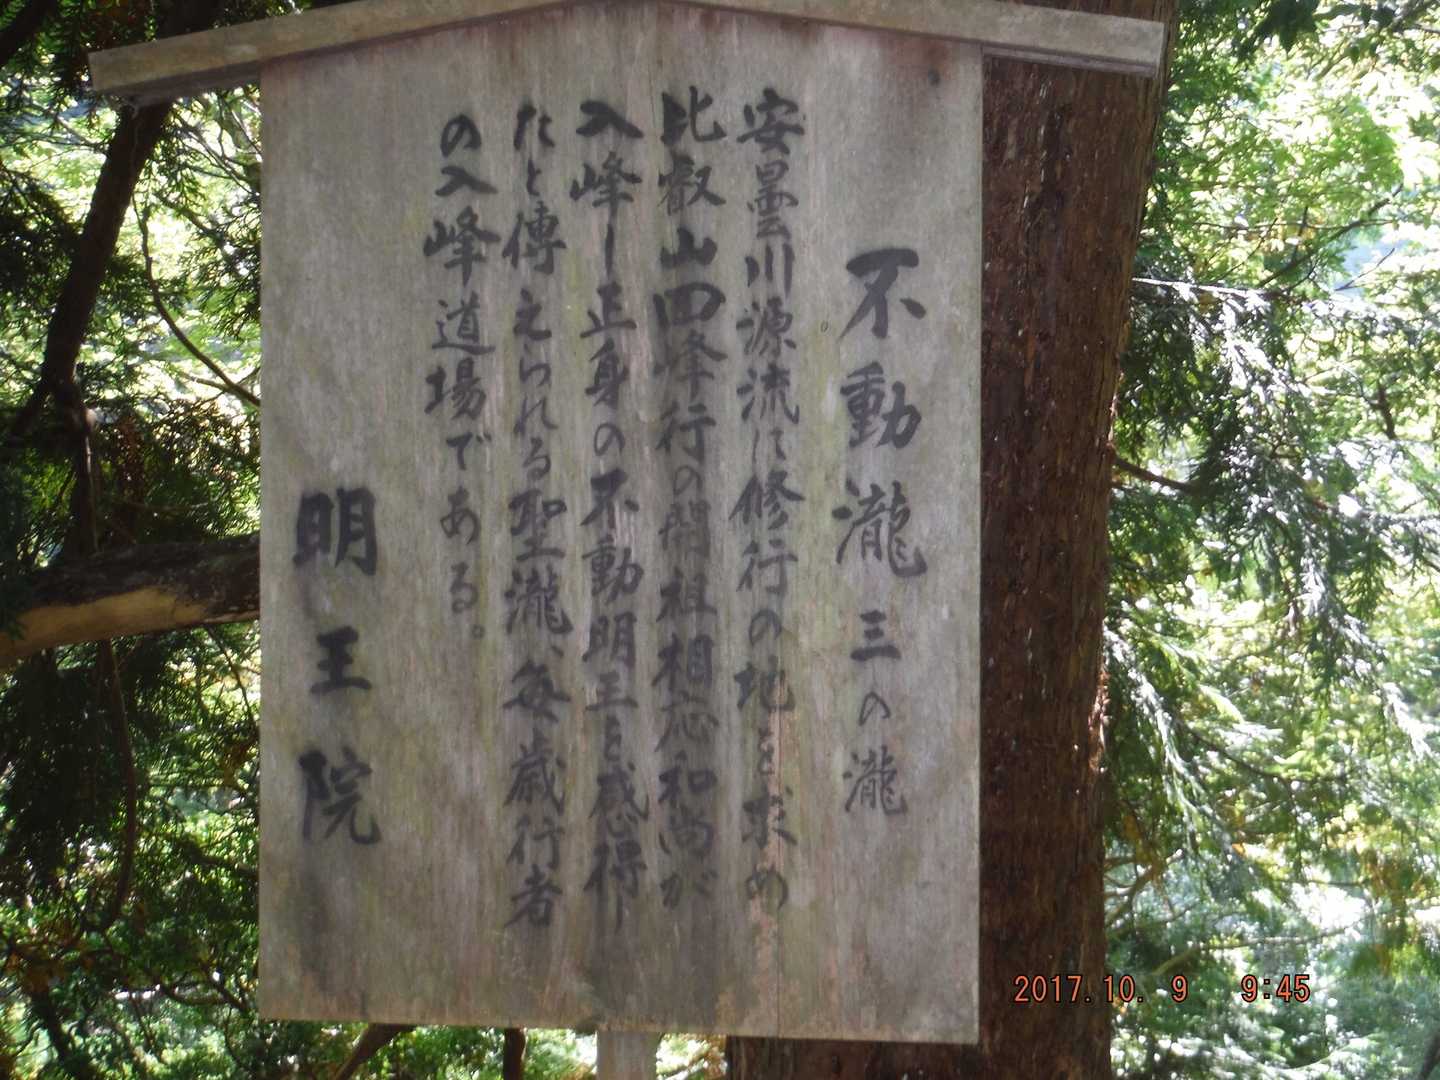 不動瀧 三の瀧
安曇川源流に修行の地を求め
比叡山回峰行の開祖相応和尚が
入峰し正身の不動明王を感得し
たと傳えられる聖瀧、毎歳行者
の入峰道場である。
明王院
2017.10. 9 9:45